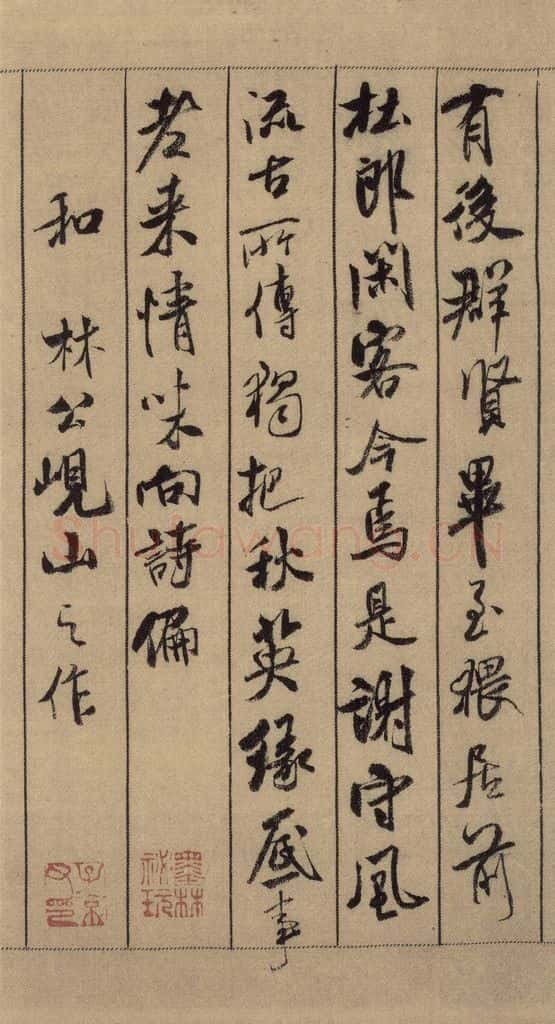 有後群賢畢至猥居前
杜郎閑客今焉是謝守風
流古所傳獨把秋英緣底事
老来情味向詩偏
和 林公峴山之作
墨林秘玩
子京父印
Shufawang.CN